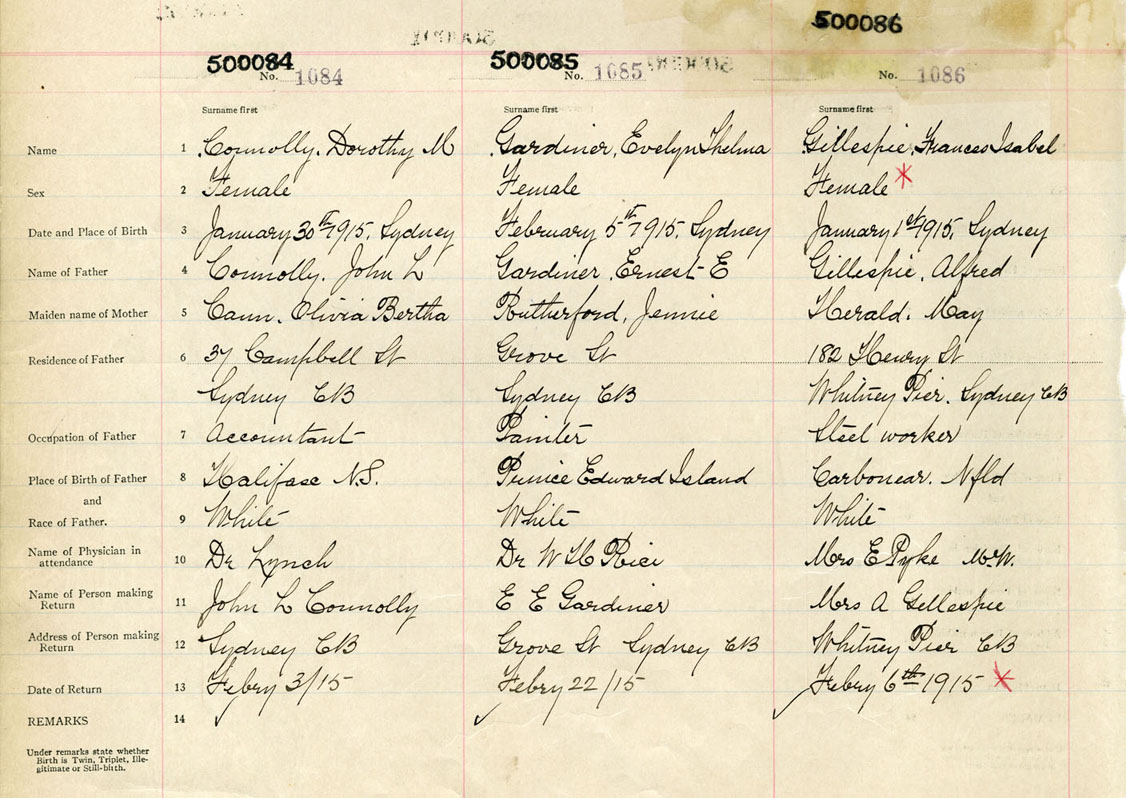 500084 500085 500086
No. 1084 No. 1085 No. 1086
Surname first Surname first Surname first
Name 1 Connolly. Dorothy M Gardiner, Evelyn Thelma Gillespie, Frances Isabel
Sex 2 Female Female Female *
Date and Place of Birth 3 January 30th 1915, Sydney February 5th 1915, Sydney January 1st 1915, Sydney
Name of Father 4 Connolly. John L Gardiner. Ernest E Gillespie, Alfred
Maiden name of Mother 5 Cann. Olivia Bertha Rutherford, Jennie Herald. May
Residence of Father 6 37 Campbell St Grove St 182 Henry St
Sydney CB Sydney CB Whitney Pier. Sydney CB
Occupation of Father 7 Accountant Painter Steel worker
Place of Birth of Father 8 Halifax N.S. Prince Edward Island Carbonear. Nfld
and
Race of Father. 9 White White White
Name of Physician in
attendance 10 Dr Lynch Dr W H Rice Mrs E Pyke M.W.
Name of Person making
Return 11 John L Connolly E E Gardiner Mrs A Gillespie
Address of Person making
Return 12 Sydney CB Grove St Sydney CB Whitney Pier CB
Date of Return 13 Febry 3/15 Febry 22/15 Febry 6th 1915 *
REMARKS 14
Under remarks state whether
Birth is Twin, Triplet, Ille-
gitimate or Still-birth.